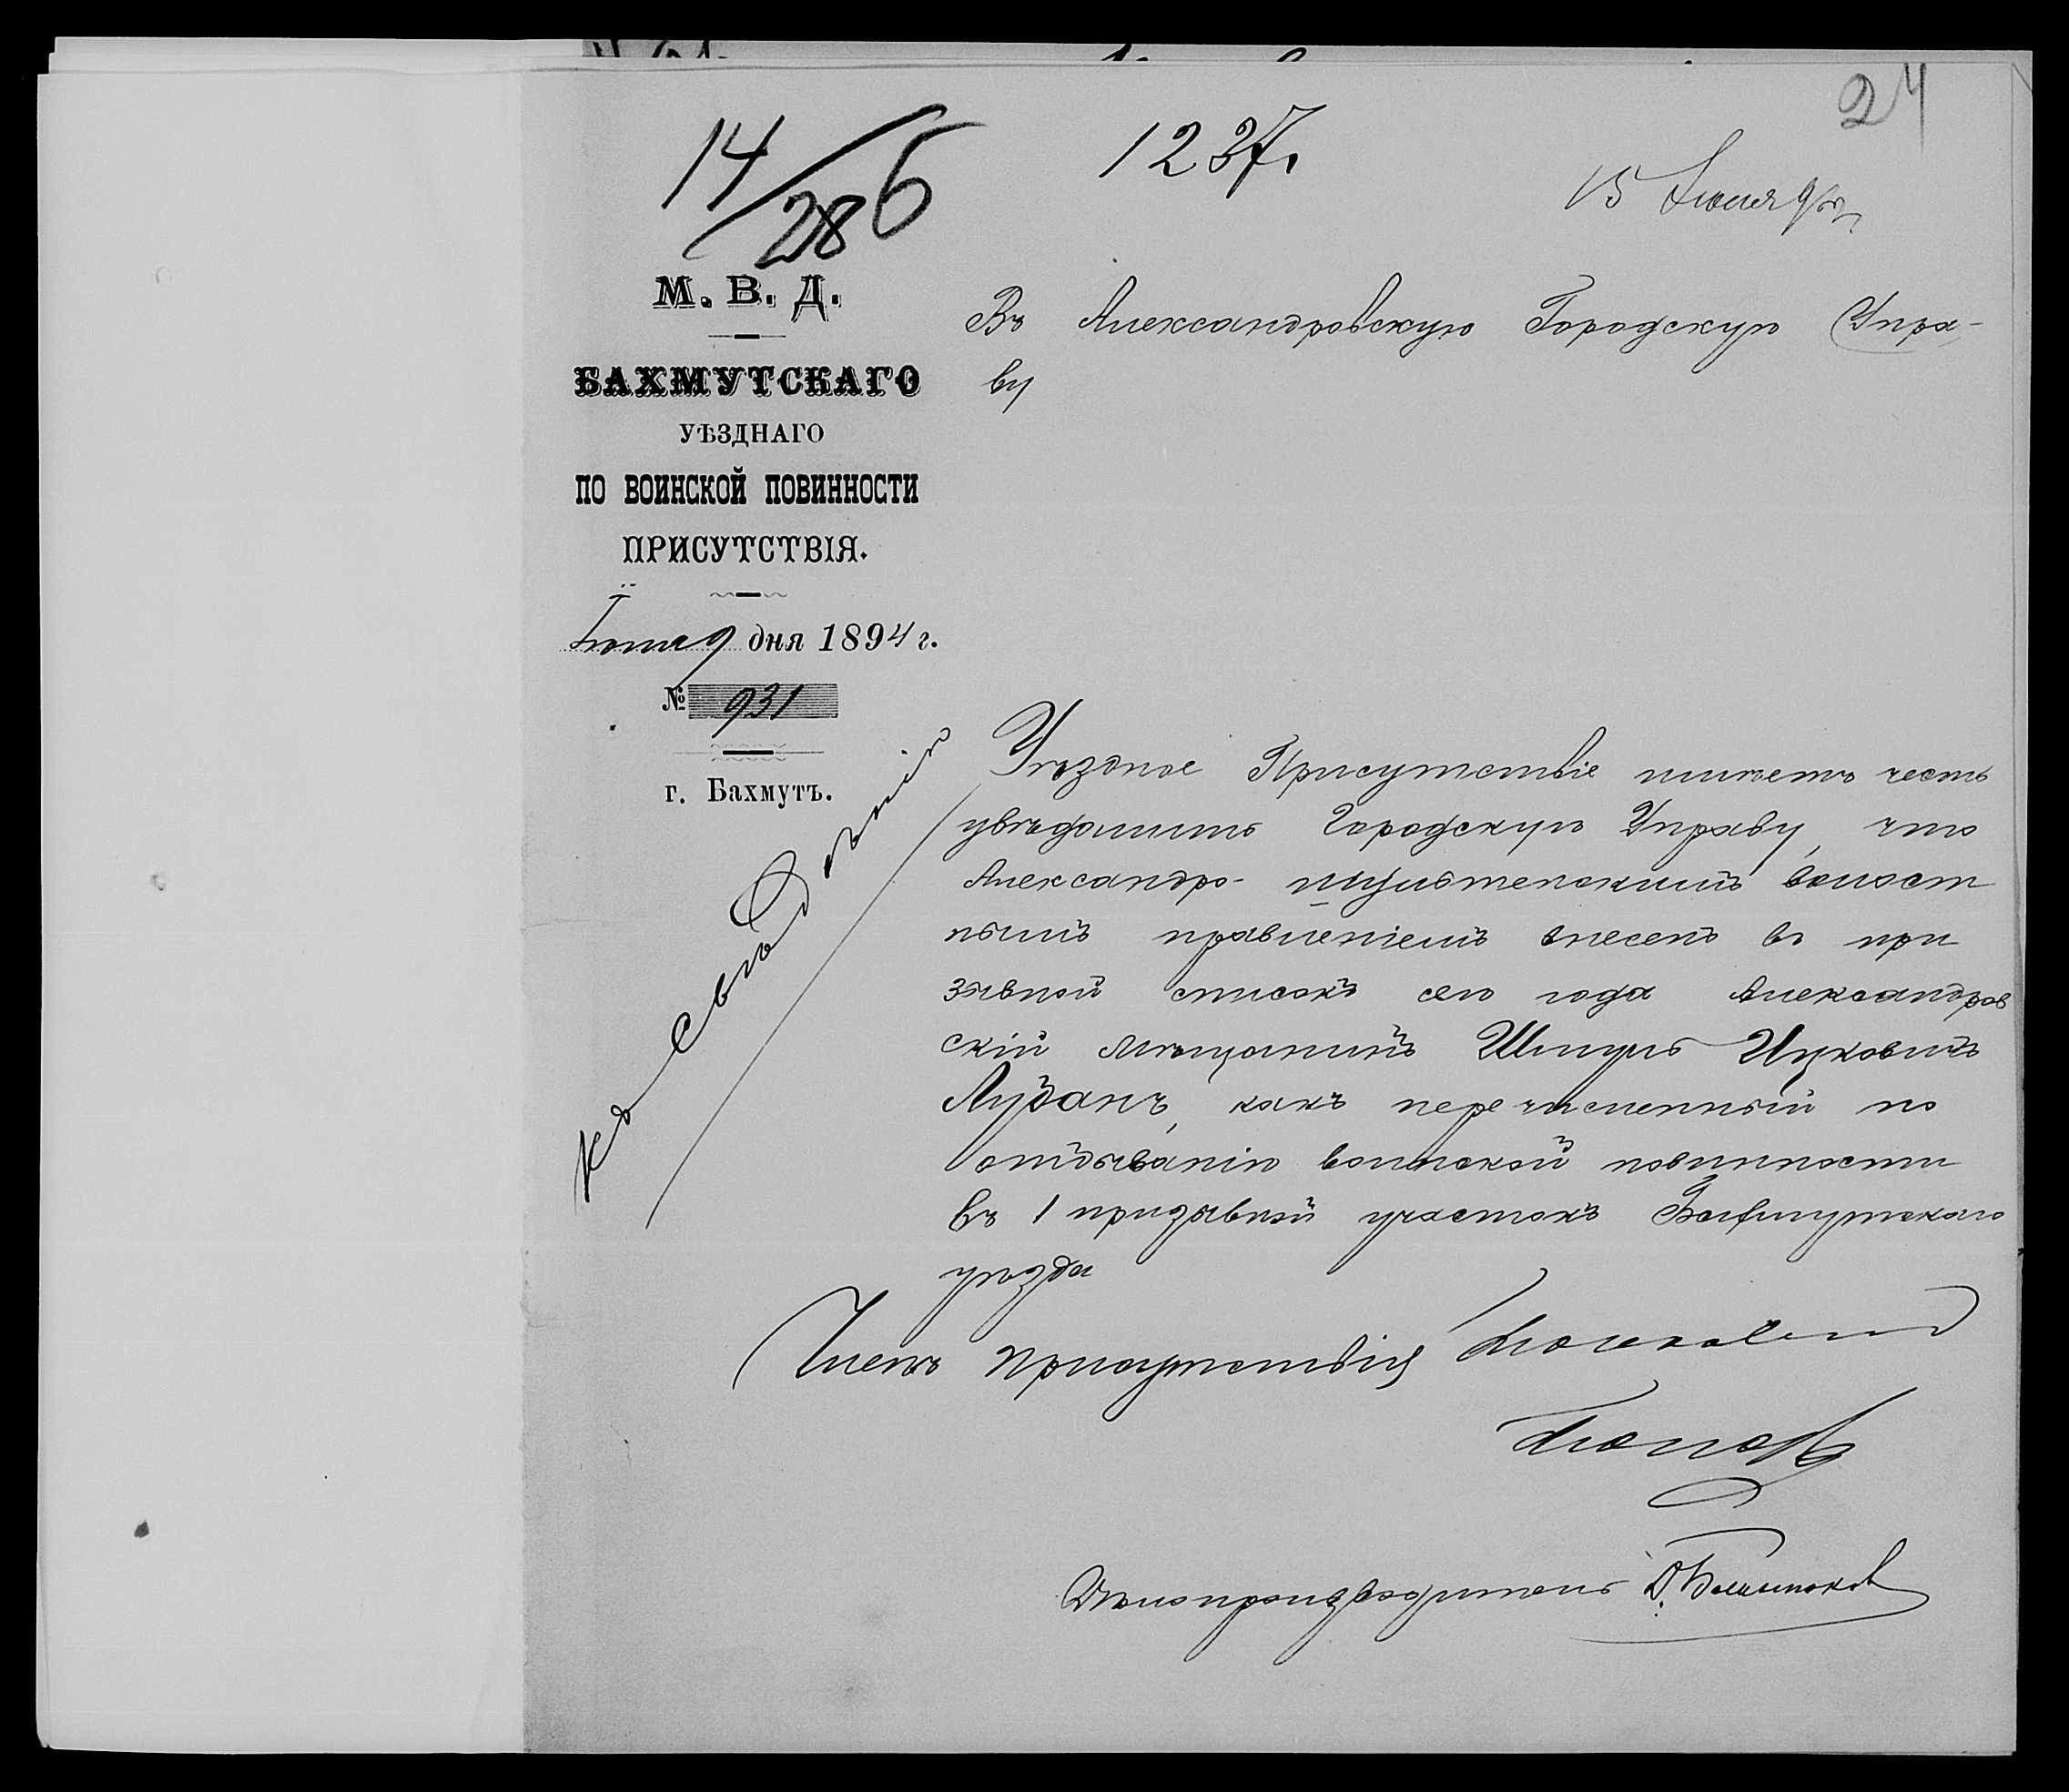 24
14/286
1237.
15 Июня 94 г.
М. В. Д.
БАХМУТСКАГО
УѢЗДНАГО
ПО ВОИНСКОЙ ПОВИННОСТИ
ПРИСУТСТВІЯ.
Іюня 9 дня 1894 г.
№ 931
г. Бахмутъ.
Въ Александровскую Городскую Упра-
ву
Къ свѣдѣнію
Уѣздное Присутствіе имѣетъ честь
увѣдомить Городскую Управу, что
Александро-Шультенскимъ волост
нымъ правленіемъ внесенъ въ при
зывной списокъ сего года Александров
скій мѣщанинъ Шмуль Ицковичъ
Лубанъ, какъ перечисленный по
отбыванію воинской повинности
въ 1 призывной участокъ Бахмутскаго
уѣзда
Членъ Присутствія
Поповъ
Дѣлопроизводитель